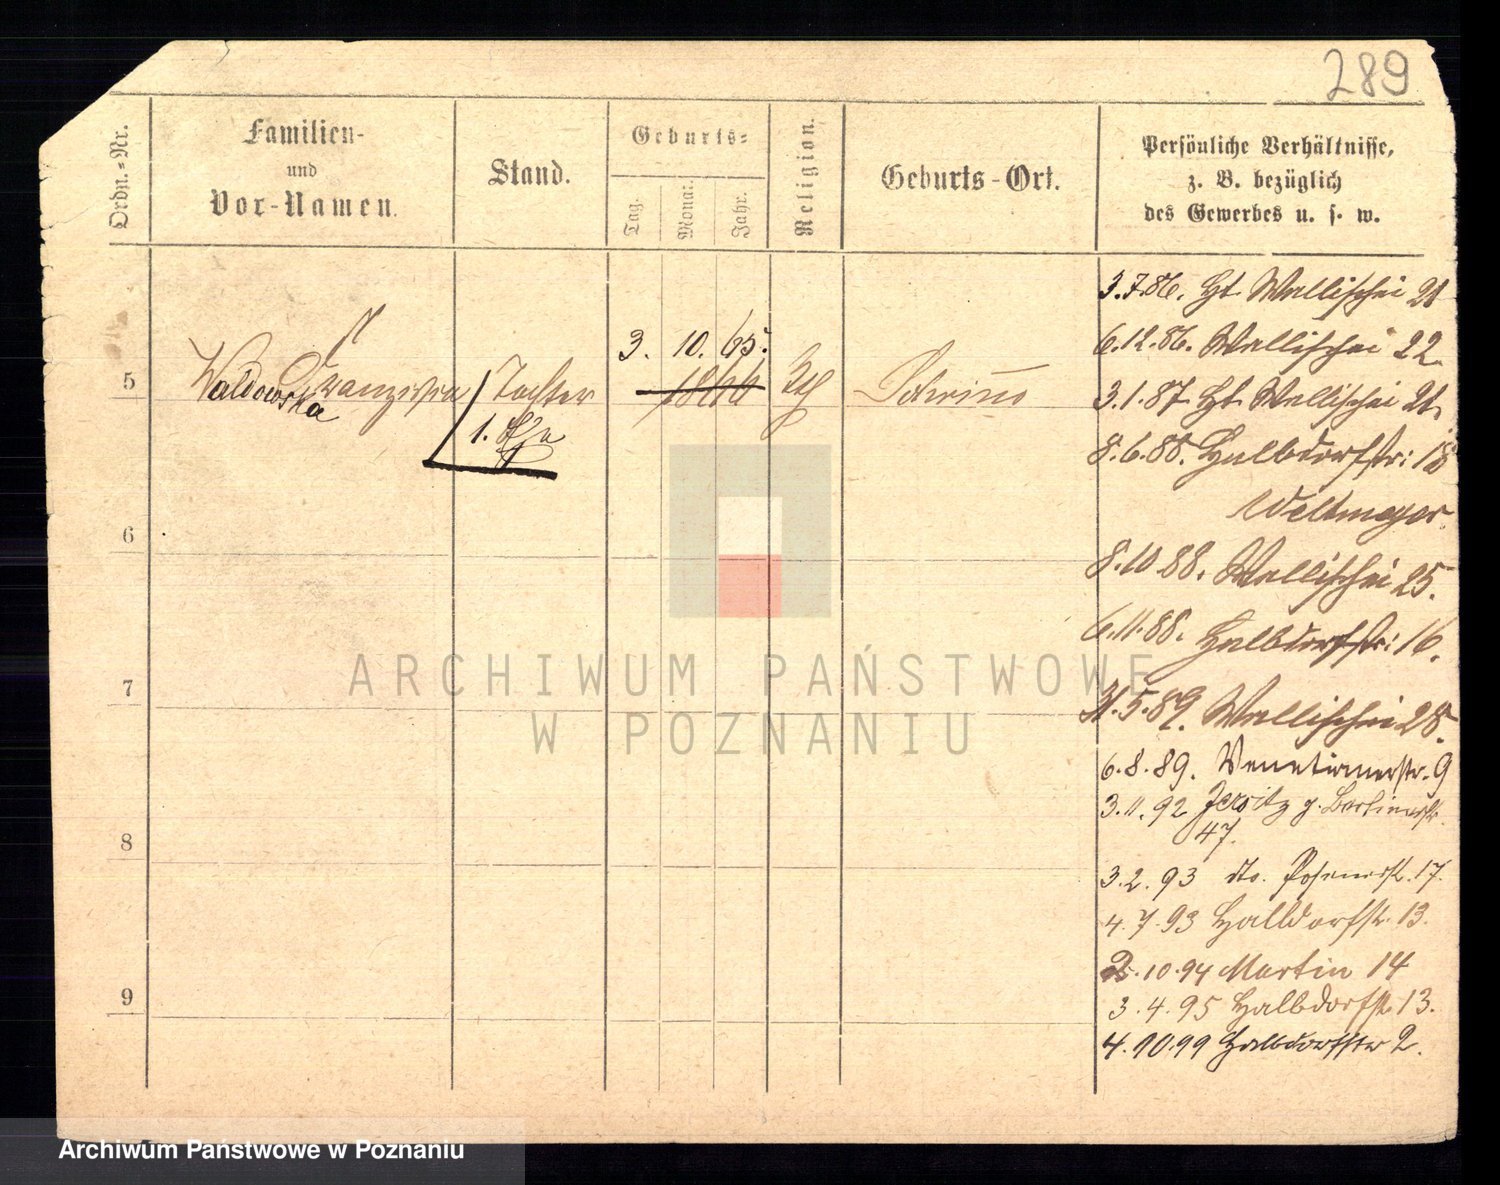 289
Ordn.-Nr.
Familien-
und
Vor-Namen.
Stand.
Geburts-
Tag.
Monat.
Jahr.
Religion.
Geburts-Ort.
Persönliche Verhältnisse,
z. B. bezüglich
des Gewerbes u. s. w.
5
Waldowska Franziska
Tochter
1.
3. 10. 65.
1866
Schrimm
3.7.86. Ht. Wallischei 21
6.12.86. Wallischei 22
3.1.87 Ht. Wallischei 21.
8.6.88. Halbdorfstr: 18
Weltmeyer.
8.10.88. Wallischei 25.
6.11.88. Halbdorfstr: 16.
31.5.89. Wallischei 28.
6.8.89. Venetianerstr. 9
3.11.92 Jersitz g. Berlinerstr.
47.
3.2.93 dto. Posenerstr. 17.
4.7.93 Halbdorfstr. 13.
2.10.94 Martin 14
3.4.95 Halbdorfstr. 13.
4.10.99 Halbdorfstr 2.
6
7
8
9
ARCHIWUM PAŃSTWOWE
W POZNANIU
Archiwum Państwowe w Poznaniu